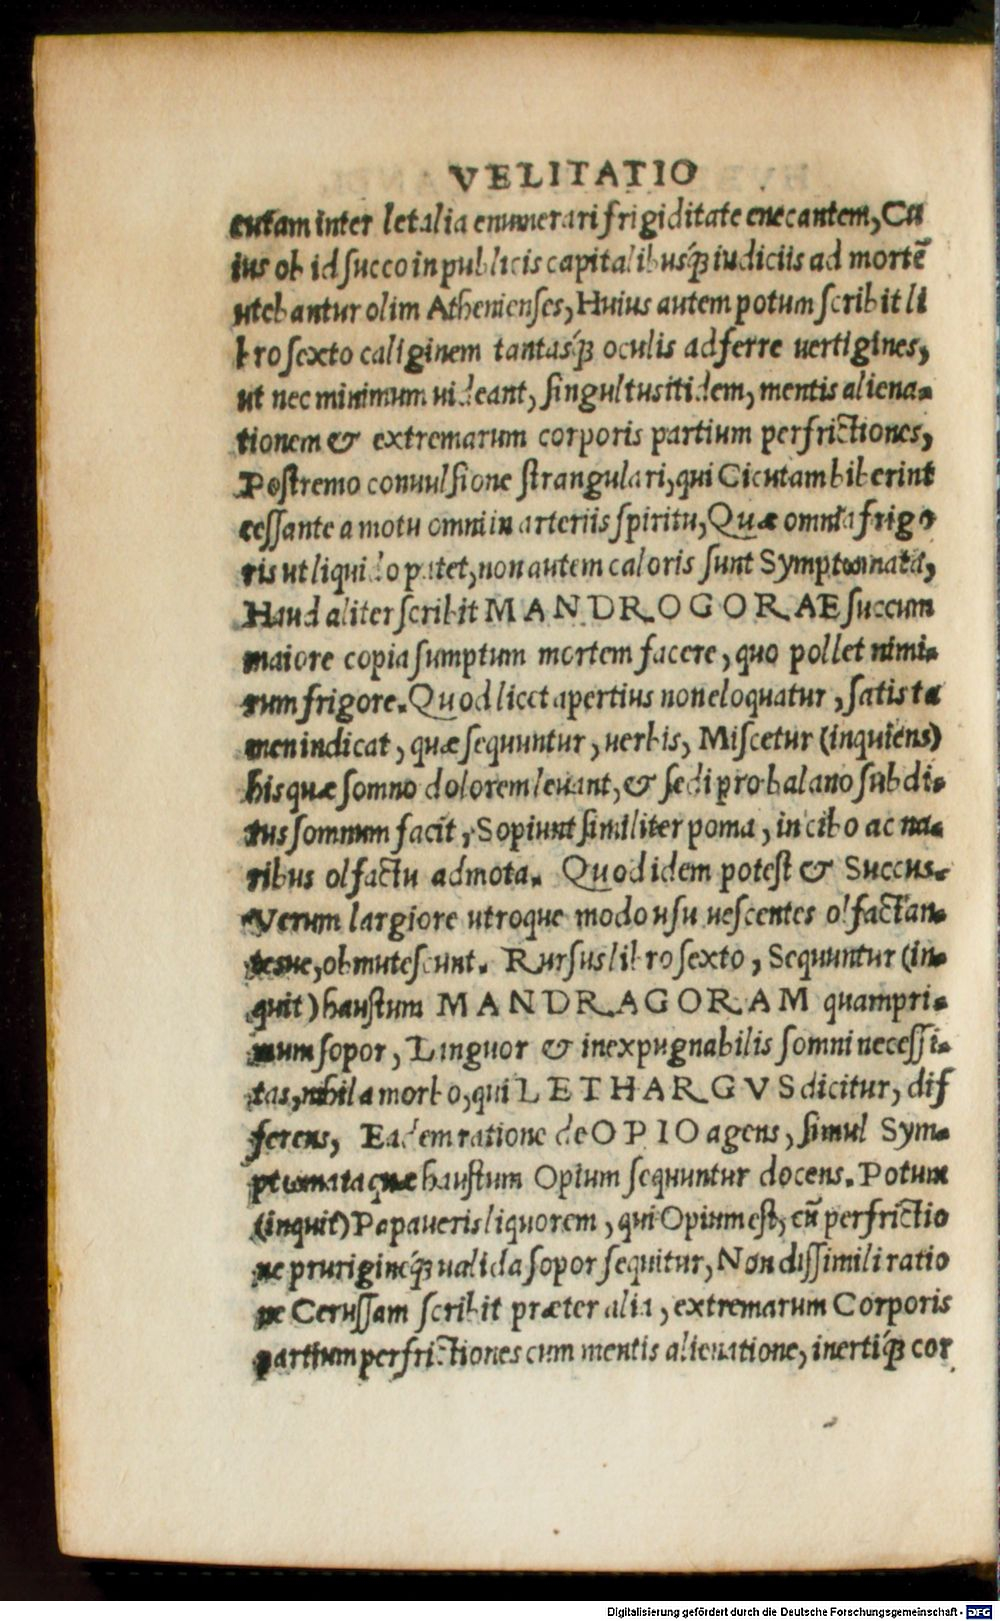 VELITATIO
cutam inter letalia enumerari frigiditate enecantem, Cu
ius ob id succo in publicis capitalibusq́ꝫ iudiciis ad mortē
utebantur olim Athenienses, Huius autem potum scribit li
bro sexto caliginem tantasq́ꝫ oculis adferre uertigines,
ut nec minimum uideant, singultus itidem, mentis aliena-
tionem & extremarum corporis partium perfrictiones,
Postremo conuulsione strangulari, qui Cicutam biberint
cessante a motu omni in arteriis spiritu, Quæ omnia frigo
ris ut liquido patet, non autem caloris sunt Symptomata,
Haud aliter scribit MANDROGORAE succum
maiore copia sumptum mortem facere, quo pollet nimi-
rum frigore. Quod licet apertius non eloquatur, satis ta
men indicat, quæ sequuntur, uerbis, Miscetur (inquiens)
his quæ somno dolorem leuant, & sedi pro balano subdi-
tus somnum facit, Sopiunt similiter poma, in cibo ac na-
ribus olfactu admota. Quod idem potest & Succus.
Verum largiore utroque modo usu uescentes olfactan-
tesue, obmutescunt. Rursus libro sexto, Sequuntur (in-
quit) haustum MANDRAGORAM quampri-
mum sopor, Linguor & inexpugnabilis somni necessi-
tas, nihil a morbo, qui LETHARGVS dicitur, dif
ferens, Eadem ratione de OPIO agens, simul Sym-
ptomata quæ haustum Opium sequuntur docens. Potum
(inquit) Papaueris liquorem, qui Opium est, cū perfrictio
ne prurigineq́ꝫ ualida sopor sequitur, Non dissimili ratio
ne Cerussam scribit præter alia, extremarum Corporis
partium perfrictiones cum mentis alienatione, inertiq́ꝫ cor
Digitalisierung gefördert durch die Deutsche Forschungsgemeinschaft - DFG